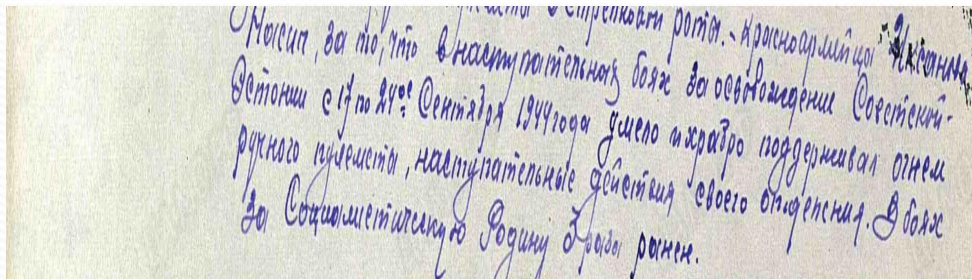 стрелковой роты. - Красноармейца
Насип, за то, что в наступательных боях за освобождение Советской -
Эстонии с 17 по 24ое Сентября 1944 года умело и храбро поддерживал огнем
ручного пулемета, наступательные действия своего отделения. В боях
за Социалистическую Родину 3 раза ранен.